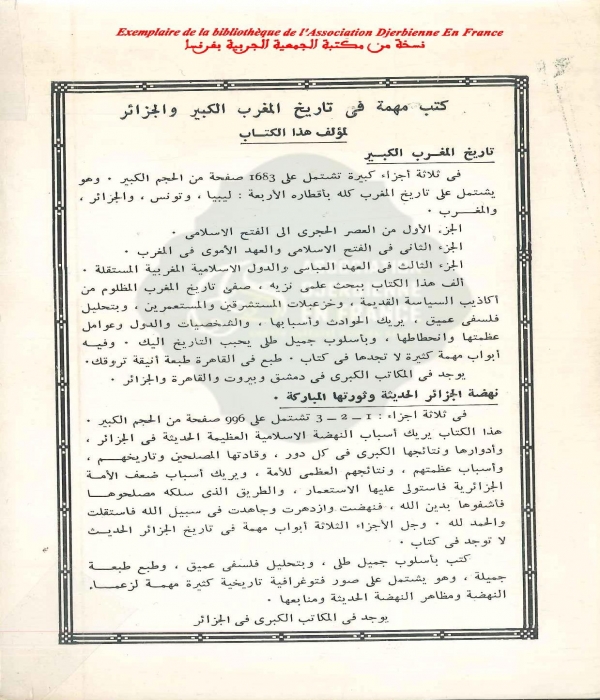 Exemplaire de la bibliothèque de l'Association Djerbienne En France
نسخة من مكتبة الجمعية الجربية بفرنسا
كتب مهمة فى تاريخ المغرب الكبير والجزائر
لمؤلف هذا الكتاب
تاريخ المغرب الكبير
فى ثلاثة أجزاء كبيرة تشتمل على 1683 صفحة من الحجم الكبير ٠ وهو
يشتمل على تاريخ المغرب كله بأقطاره الأربعة : ليبيا ، وتونس ، والجزائر ،
والمغرب ٠
الجزء الأول من العصر الحجرى الى الفتح الاسلامى ٠
الجزء الثانى فى الفتح الاسلامى والعهد الأموى فى المغرب ٠
الجزء الثالث فى العهد العباسى والدول الاسلامية المغربية المستقلة ٠
ألف هذا الكتاب ببحث علمى نزيه ، صفى تاريخ المغرب المظلوم من
أكاذيب السياسة القديمة ، وخزعبلات المستشرقين والمستعمرين ، وبتحليل
فلسفى عميق ، يريك الحوادث وأسبابها ، والشخصيات والدول وعوامل
عظمتها وانحطاطها ، وبأسلوب جميل طلى يحبب التاريخ اليك ٠ وفيه
أبواب مهمة كثيرة لا تجدها فى كتاب ٠ طبع فى القاهرة طبعة أنيقة تروقك٠
يوجد فى المكاتب الكبرى فى دمشق وبيروت والقاهرة والجزائر ٠
نهضة الجزائر الحديثة وثورتها المباركة ٠
فى ثلاثة اجزاء : 1 – 2 – 3 تشتمل على 996 صفحة من الحجم الكبير ٠
هذا الكتاب يريك أسباب النهضة الاسلامية العظيمة الحديثة فى الجزائر ،
وأدوارها ونتائجها الكبرى فى كل دور ، وقادتها المصلحين وتاريخهم ،
وأسباب عظمتهم ، ونتائجهم العظمى للأمة ، ويريك أسباب ضعف الأمة
الجزائرية فاستولى عليها الاستعمار ، والطريق الذى سلكه مصلحوها
فأشفوها بدين الله ، فنهضت وازدهرت وجاهدت فى سبيل الله فاستقلت
والحمد لله ٠ وجل الأجزاء الثلاثة أبواب مهمة فى تاريخ الجزائر الحديث
لا توجد فى كتاب ٠
كتب بأسلوب جميل طلى ، وبتحليل فلسفى عميق ، وطبع طبعة
جميلة ، وهو يشتمل على صور فتوغرافية تاريخية كثيرة مهمة لزعماء
النهضة ومظاهر النهضة الحديثة ومنابعها ٠
يوجد فى المكاتب الكبرى فى الجزائر